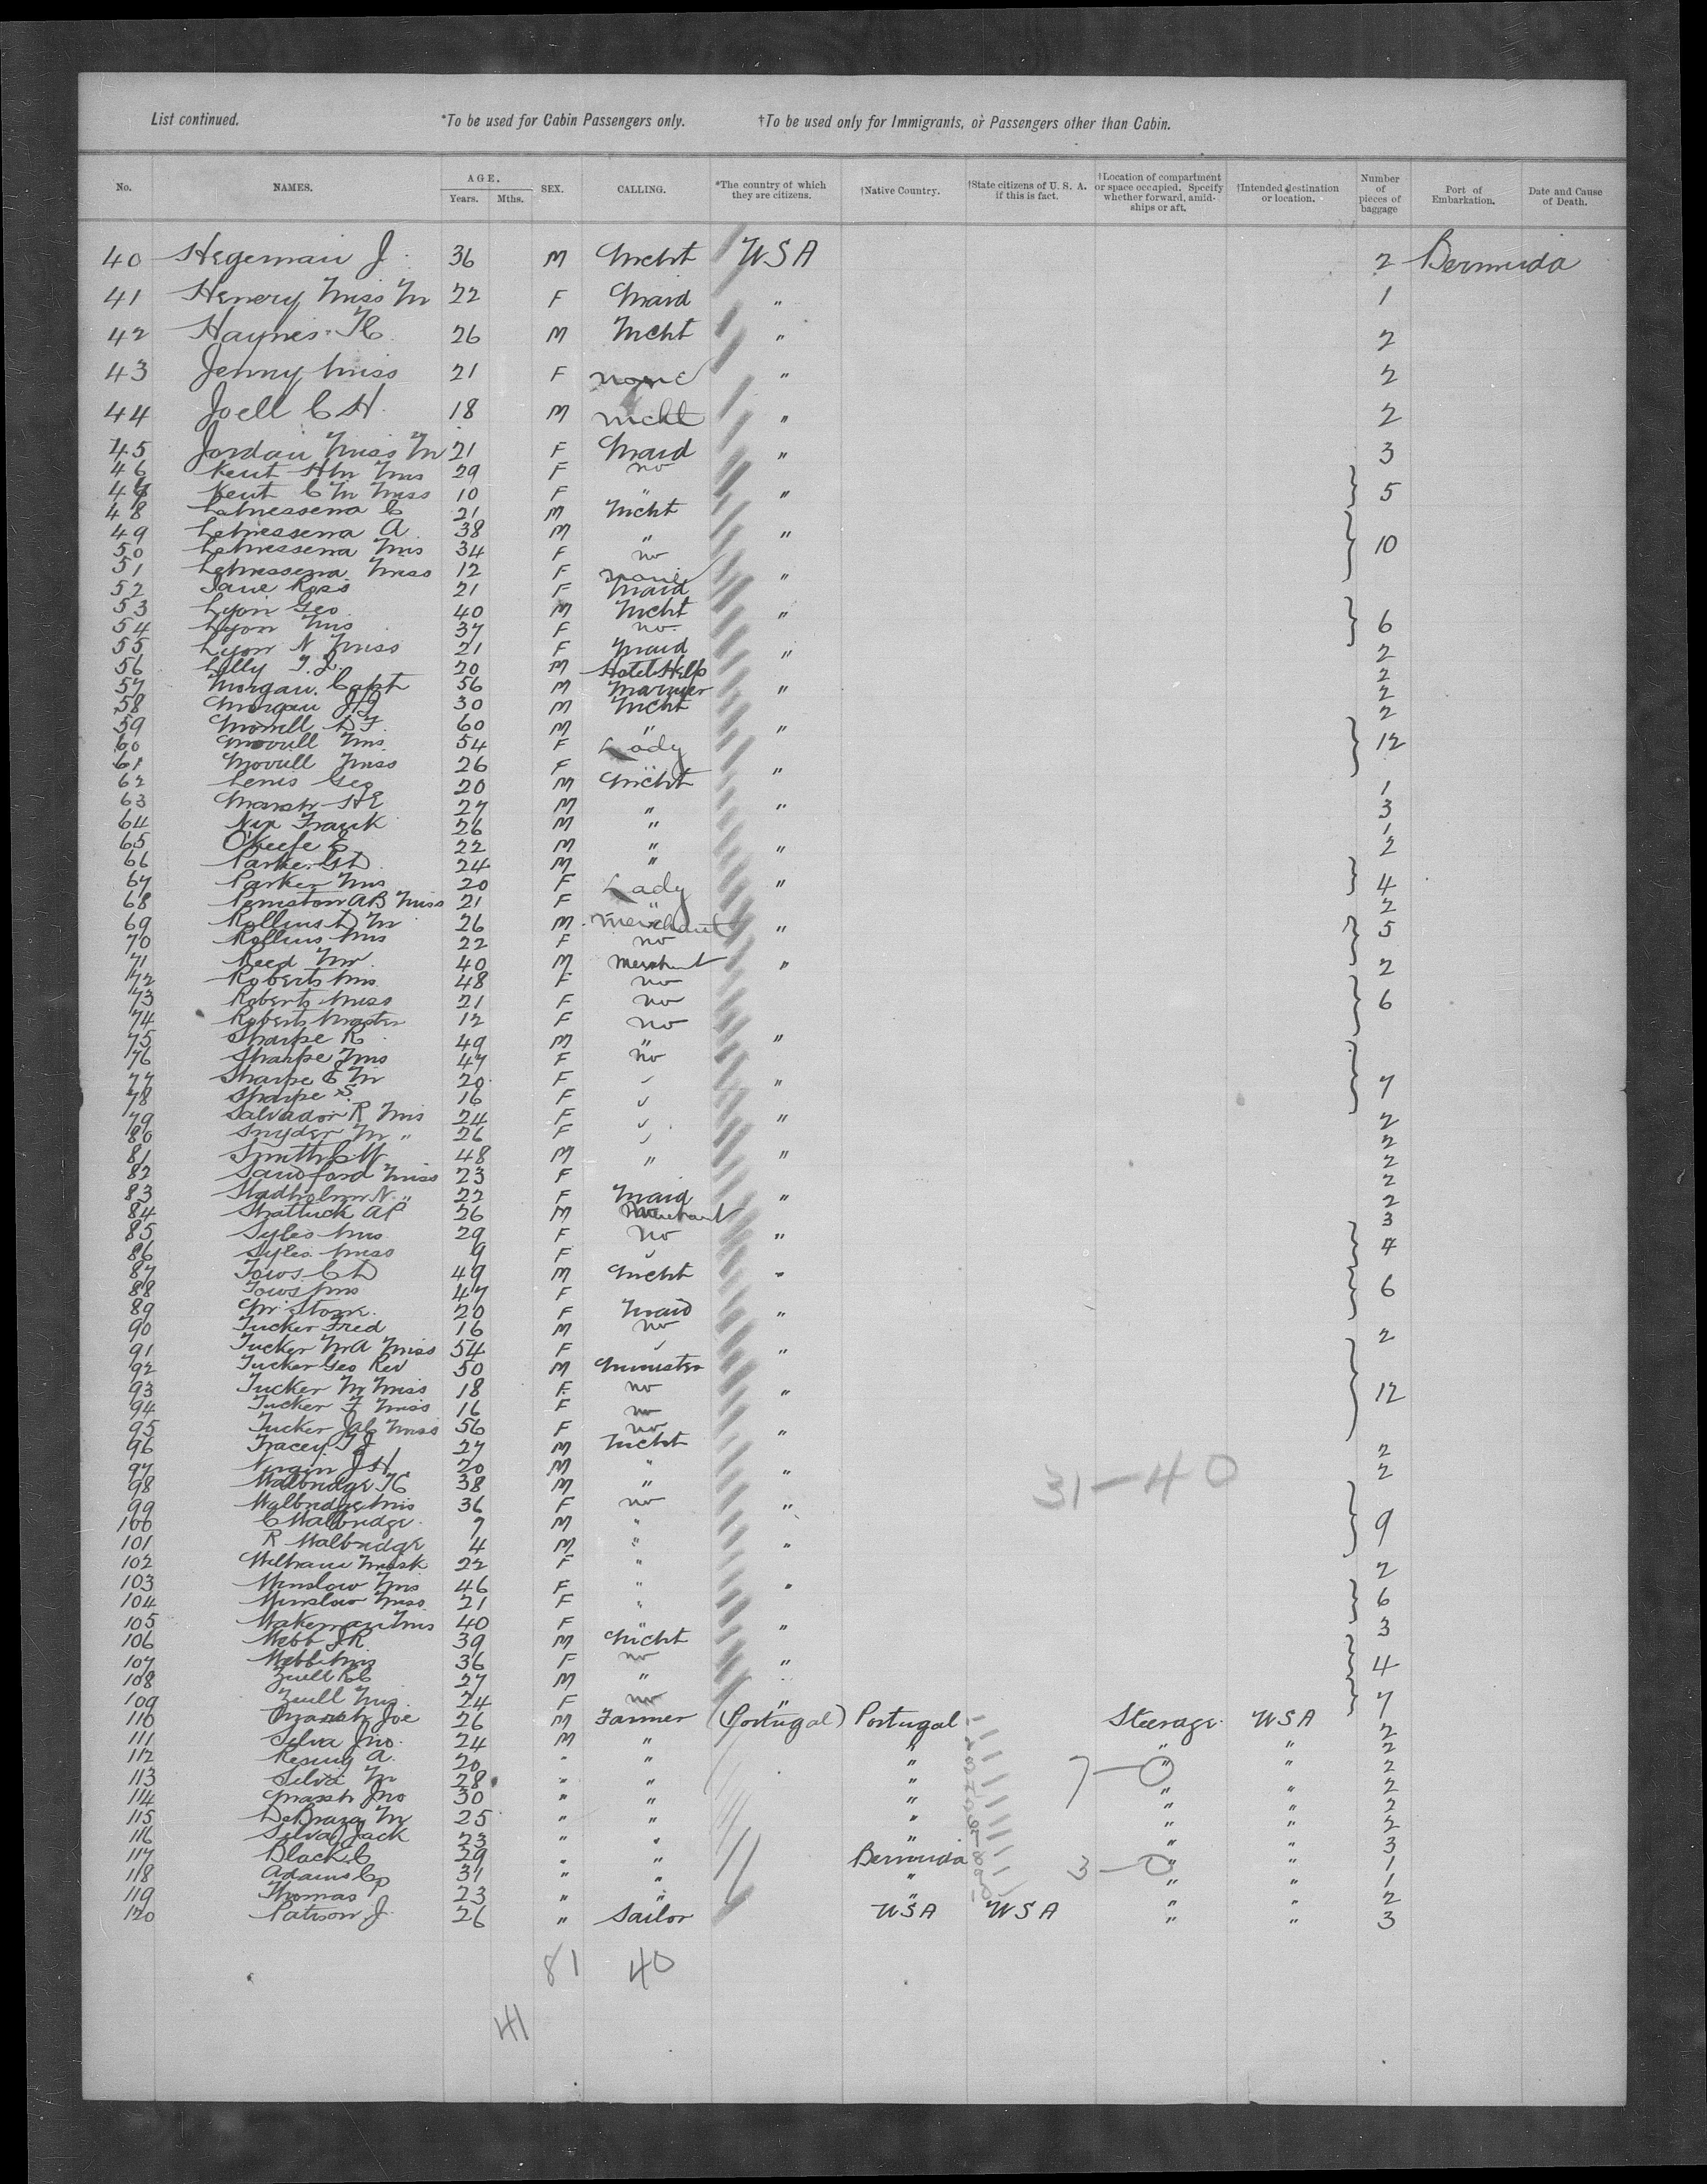 List continued. *To be used for Cabin Passengers only. †To be used only for Immigrants, or Passengers other than Cabin.
No. NAMES. AGE. Years. Mths. SEX. CALLING. *The country of which they are citizens. †Native Country. †State citizens of U. S. A. if this is fact. †Location of compartment or space occupied. Specify whether forward, amidships or aft. †Intended destination or location. Number of pieces of baggage Port of Embarkation. Date and Cause of Death.
40 Hegeman J. 36 M Mcht USA 2 Bermuda
41 Henery Miss M 22 F Maid " 1
42 Haynes 26 M Mcht " 2
43 Jenny Miss 21 F none " 2
44 Joell C H. 18 M Mcht " 2
45 Jordan Miss M 21 F Maid " 3
46 Kent H M Mrs 29 F no
47 Kent C M Miss 10 F " " 5
48 C 21 M Mcht
49 A 38 M " " 10
50 Mrs 34 F no
51 Miss 12 F none "
52 Jane Ross 21 F Maid
53 Lyon Geo 40 M Mcht "
54 Lyon Mrs 37 F no 6
55 Lyon N Miss 21 F Maid " 2
56 Lilly 20 M Hotel Help 2
57 Morgan Capt 56 M Mariner " 2
58 Morgan 30 M Mcht 2
59 Morrill D F. 60 M " "
60 Morrill Mrs. 54 F Lady 12
61 Morrill Miss 26 F " "
62 Lenis Geo 20 M Mcht 1
63 Marsh H E 27 M " " 3
64 Nix Frank 26 M " 1
65 O'Keefe E 22 M " " 2
66 Parker G D 24 M "
67 Parker Mrs 20 F Lady " 4
68 Peniston AB Miss 21 F " 2
69 Rollins D M 26 M Merchant " 5
70 Rollins Mrs 22 F no
71 Reed Mr. 40 M Merchant " 2
72 Roberts Mrs 48 F no
73 Roberts Miss 21 F no 6
74 Roberts Master 12 F no
75 Sharpe R. 49 M " "
76 Sharpe Mrs 47 F no
77 Sharpe E M 20 F " 7
78 Sharpe S. 16 F
79 Salvador R Mrs 24 F " 2
80 Snyder M " 26 F 2
81 Smith C W 48 M " " 2
82 Sandford Miss 23 F 2
83 N. " 22 F Maid " 2
84 Shattuck A P 26 M Merchant 3
85 Syles Mrs 29 F no " 4
86 Syles Miss 9 F
87 Tows C D 49 M Mcht "
88 Tows Mrs 47 F 6
89 20 F Maid "
90 Tucker Fred 16 M no 2
91 Tucker M A Miss 54 F "
92 Tucker Geo Rev 50 M Minister
93 Tucker M Miss 18 F no " 12
94 Tucker F Miss 16 F no
95 Tucker Miss 56 F no "
96 Tracey T J 27 M Mcht 2
97 Virgin J H 20 M " " 2
98 Walbridge 38 M "
99 Walbridge Mrs 36 F no "
100 C Walbridge 7 M " 9
101 R Walbridge 4 M " "
102 22 F " 2
103 Winslow Mrs 46 F " "
104 Winslow Miss 21 F " 6
105 Wakeman Mrs 40 F " " 3
106 Webb J R 39 M Mcht
107 Webb Mrs 36 F no " 4
108 Zuill R C 27 M "
109 Zuill Mrs. 24 F no " 7
110 Joe 26 M Farmer (Portugal) Portugal Steerage USA
111 Silva Jno. 24 M " " " " 2
112 A. 20 " " " " " 2
113 Silva M 28 " " " " " 2
114 Jno 30 " " " " " 2
115 M 25 " " " " " 2
116 Silva Jack 23 " " " " " 3
117 Black C 29 " " Bermuda " " 1
118 Adams 31 " " " " " 1
119 Thomas J 23 " " " " " 2
120 Patison J. 26 " Sailor USA USA " " 3
31-40
7-0
3-0
81 40
41